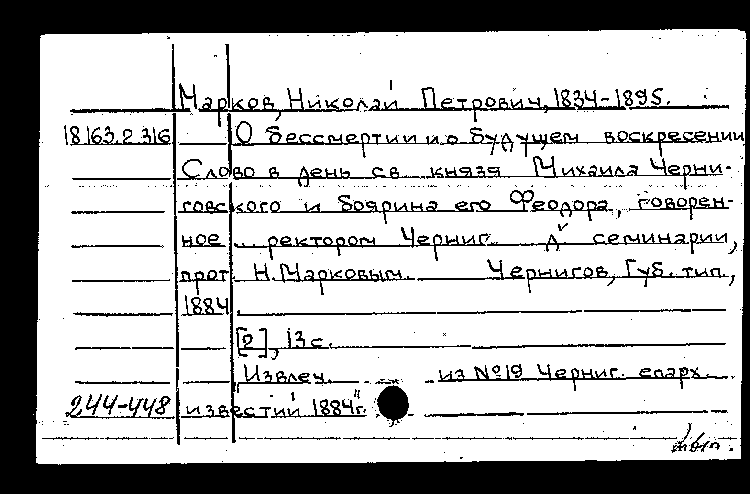 Марков, Николай Петрович, 1834-1895.
18163.2.316 О бессмертии и о будущем воскресении
Слово в день св. князя Михаила Черни-
говского и боярина его Феодора, говорен-
ное ... ректором Черниг. Д. семинарии,
прот. Н. Марковым. Чернигов, Губ. тип.,
1884.
[2], 13 с.
"Извлеч. из №19 Черниг. епарх.
244-448 известий 1884"г.